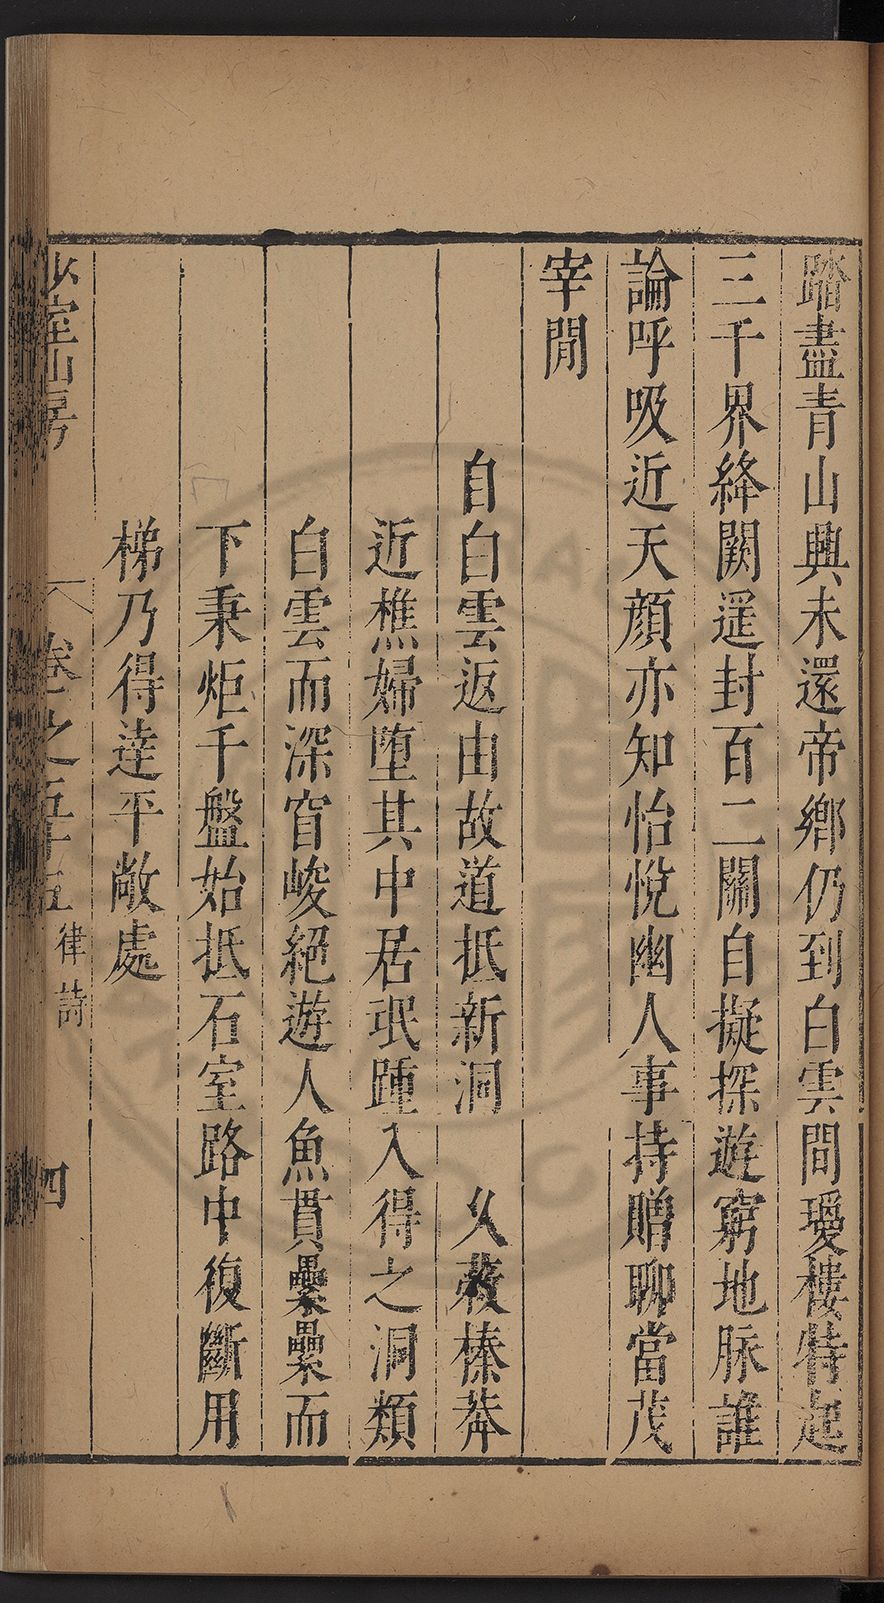 踏盡青山興未還帝鄉仍到白雲間璦樓特起
三千界絳闕遥封百二關自擬探遊窮地脉誰
論呼吸近天顔亦知怡悅幽人事持贈聊當茂
宰閒
自白雲返由故道抵新洞　久蔽榛莽
近樵婦墮其中居氓踵入得之洞類
白雲而深窅峻絕遊人魚貫纍纍而
下秉炬千盤始抵石室路中復斷用
梯乃得逹平敞處
少室山房
卷之五十五
律詩
四